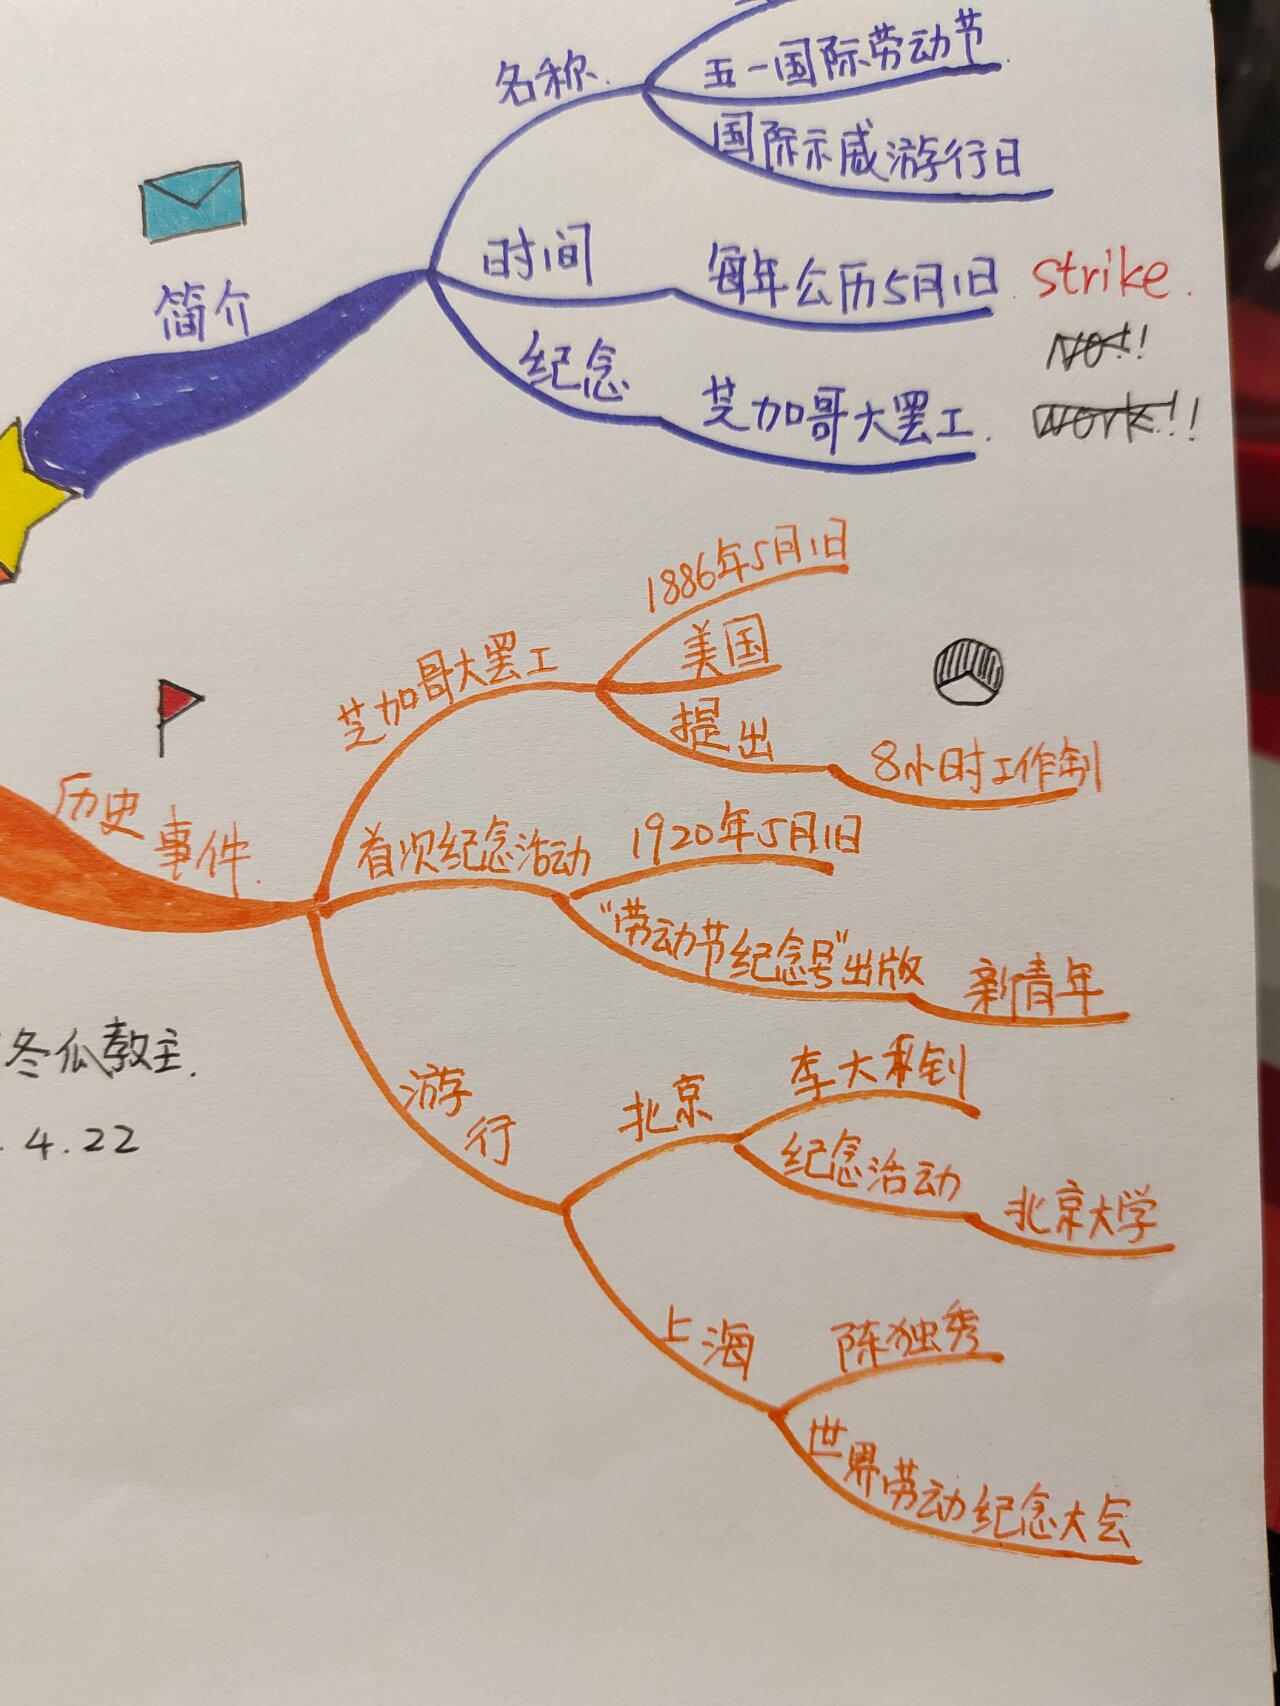 名称.
五一国际劳动节.
国际示威游行日
简介
时间
每年公历5月1日.
strike.
纪念
NO!!
芝加哥大罢工.
work!!
1886年5月1日
芝加哥大罢工
美国
提出
8小时工作制
历史
事件.
首次纪念活动
1920年5月1日
"劳动节纪念号"出版
新青年
冬瓜教主.
游行
北京
李大钊
. 4.22
纪念活动
北京大学
上海
陈独秀
世界劳动纪念大会